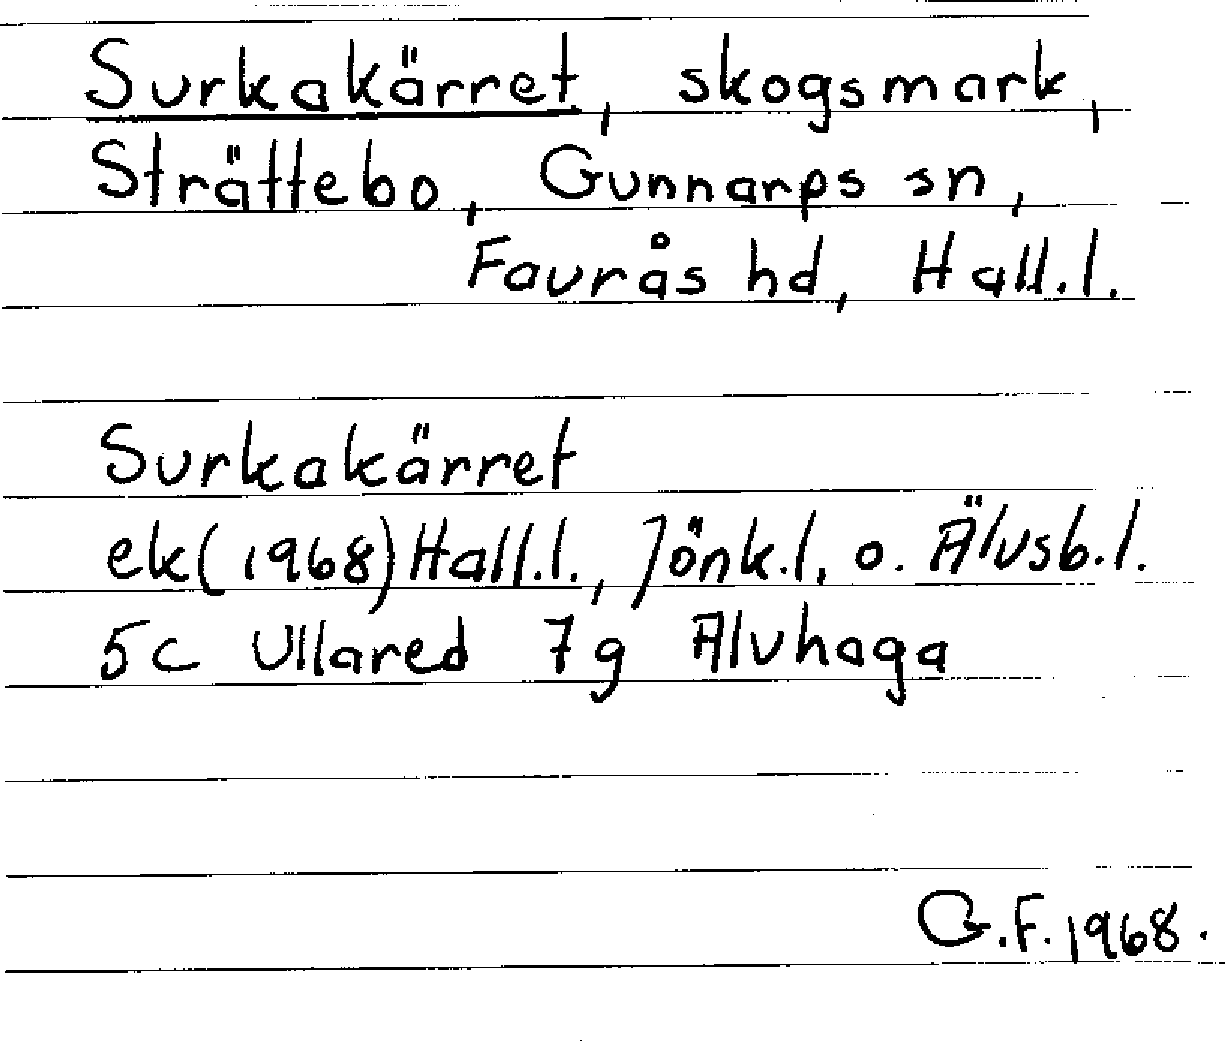 Surkakärret, skogsmark,
Strättebo, Gunnarps sn,
Faurås hd, Hall.l.
Surkakärret
ek(1968)Hall.l., Jönk.l. o. Älvsb.l.
5c Ullared 7g Alvhaga
G.F. 1968.